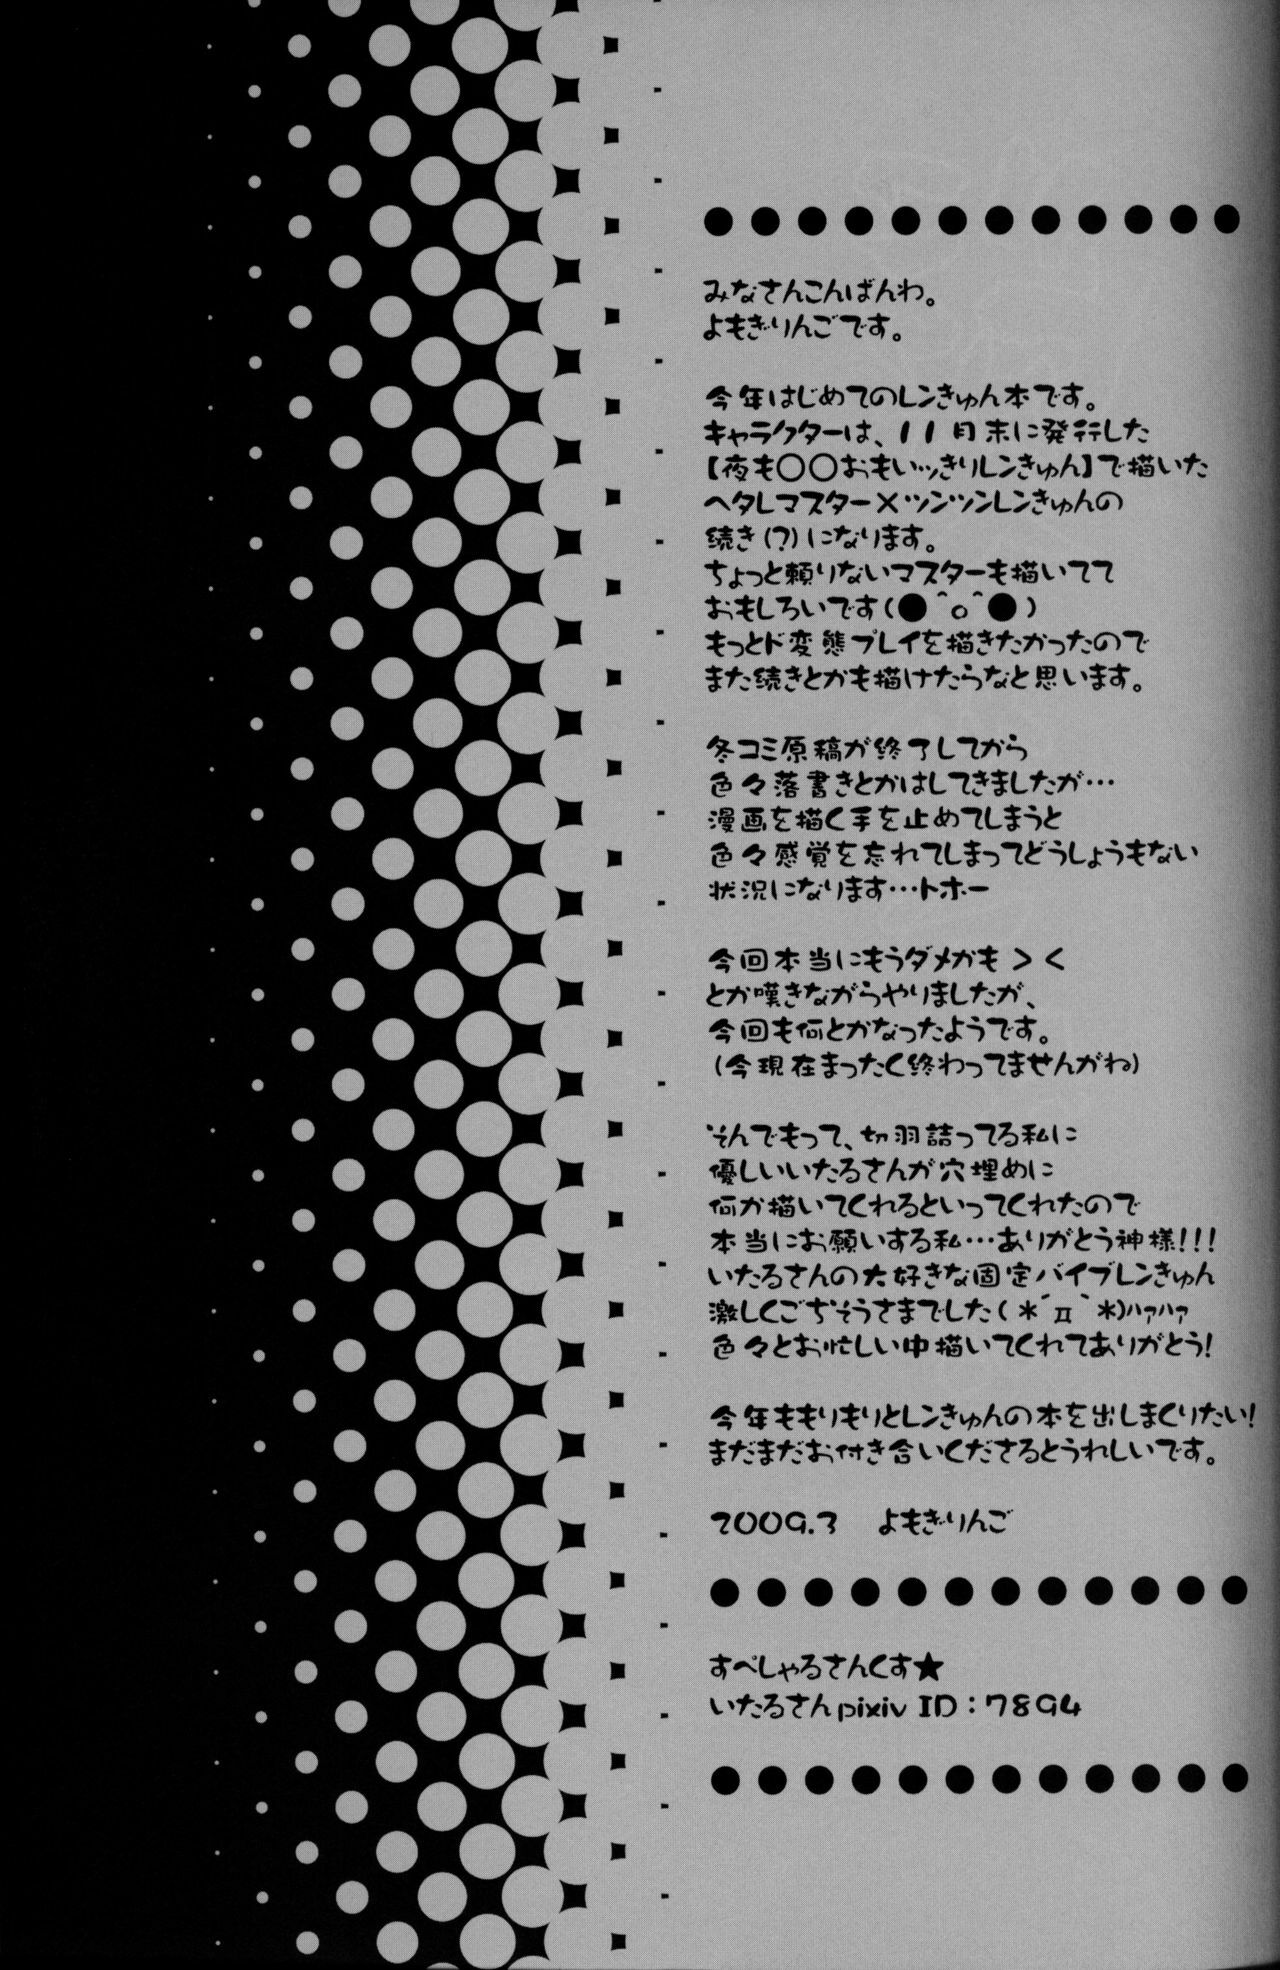 みなさんこんばんわ。
よもぎりんごです。
今年はじめてのレンきゅん本です。
キャラクターは、11月末に発行した
【夜も○○おもいッきりレンきゅん】で描いた
ヘタレマスター×ツンツンレンきゅんの
続き(?)になります。
ちょっと頼りないマスターも描いてて
おもしろいです(●^o^●)
もっとド変態プレイを描きたかったので
また続きとかも描けたらなと思います。
冬コミ原稿が終了してから
色々落書きとかはしてきましたが…
漫画を描く手を止めてしまうと
色々感覚を忘れてしまってどうしょうもない
状況になります…トホー
今回本当にもうダメかも＞＜
とか嘆きながらやりましたが、
今回も何とかなったようです。
(今現在まったく終わってませんがね)
そんでもって、切羽詰ってる私に
優しいいたるさんが穴埋めに
何か描いてくれるといってくれたので
本当にお願いする私…ありがとう神様!!!
いたるさんの大好きな固定バイブレンきゅん
激しくごちそうさまでした(*´Д｀*)ﾊｧﾊｧ
色々とお忙しい中描いてくれてありがとう!
今年ももりもりとレンきゅんの本を出しまくりたい!
まだまだお付き合いくださるとうれしいです。
2009.3　よもぎりんご
すぺしゃるさんくす★
いたるさんpixiv ID：7894